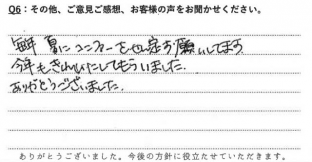 Q6：その他、ご意見ご感想、お客様の声をお聞かせください。
毎年 夏にエアコンを 願いしてます
今年もきれいにしてもらいました。
ありがとうございました。
ありがとうございました。今後の方針に役立たせていただきます。